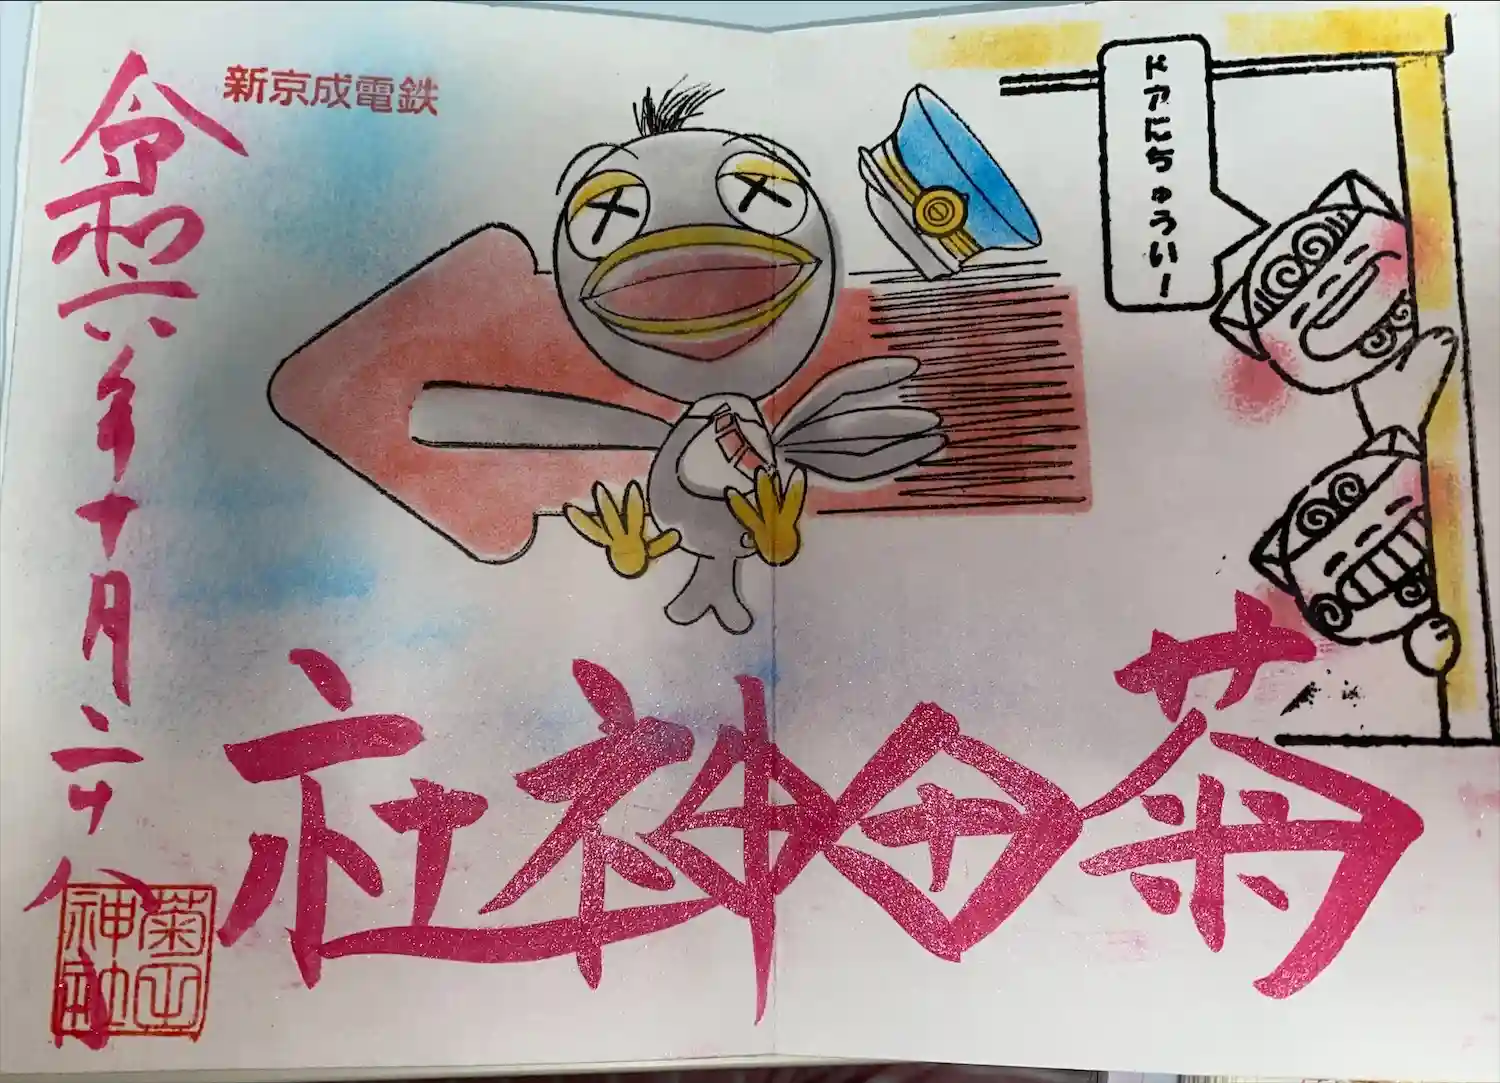 ドアにちゅうい!
菊田神社
新京成電鉄
令和六年十月二十八日
菊田
神社